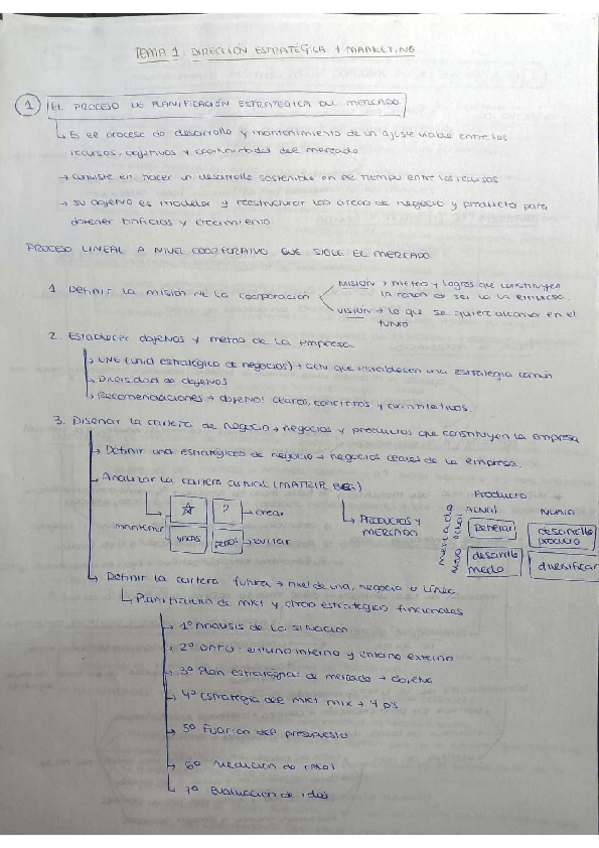 TEMA 1: DIRECCIÓN ESTRATÉGICA Y MARKETING
1 EL PROCESO DE PLANIFICACIÓN ESTRATEGICA DEL MERCADO.
↳ Es el proceso de desarrollo y mantenimiento de un ajuste viable entre los
recursos, objetivos y oportunidades del mercado
→ consiste en hacer un desarrollo sostenible en el tiempo entre los recursos
→ su objetivo es modelar y reestructurar las áreas de negocio y producto para
obtener beneficios y crecimiento.
PROCESO LINEAL A NIVEL COORPORATIVO QUE SIGUE EL MERCADO
1. Definir la misión de la cooporación
MISIÓN → metas y logros que constituyen
la razón de ser la empresa.
VISIÓN → lo que se quiere alcanzar en el
futuro
2. Establecer objetivos y metas de la empresa
↳ UNE (unid estratégica de negocios) → que establecen una estrategia común
↳ de objetivos
↳ Recomendaciones → objetivo: claros, concretos y cuantitativos.
3. Diseñar la cartera de negocio → negocios y productos que constituyen la empresa
↳ Definir una estratégicos de negocio → negocios de la empresa.
↳ Analizar la cartera actual (MATRIZ BCG)
☆ ? → crear
mantener
vacas perros → evitar
↳ PRODUCTOS Y
MERCADO
Producto
Actual Nuevo
mercado
nuevo actual
Penetrar desarrollo
producto
desarrollo
mcdo diversificar
↳ Definir la cartera futura → nivel de une, negocio o línea.
↳ Planificación de mkt y otras estrategias funcionales
↳ 1º Análisis de la situación
↳ 2º DAFO: entorno interno y entorno externo
↳ 3º Plan estratégico: de mercado → objetivo
↳ 4º Estrategia del mkt mix → 4 p's
↳ 5º Fijación del presupuesto
↳ 6º Medición de
↳ 7º Evaluación de